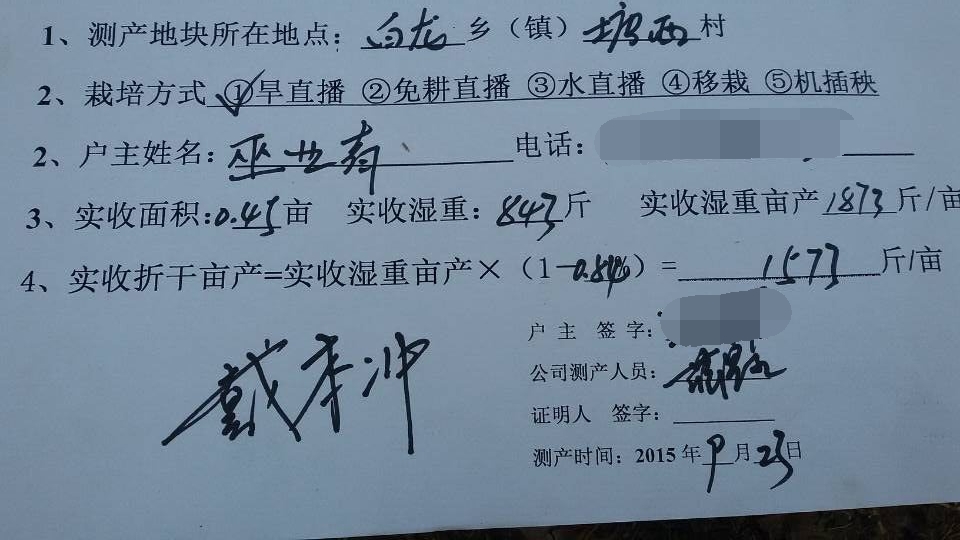 1、测产地块所在地点：白龙乡（镇）塘西村
2、栽培方式 ①旱直播 ②免耕直播 ③水直播 ④移栽 ⑤机插秧
2、户主姓名：巫世 电话：
3、实收面积：0.45亩 实收湿重：843斤 实收湿重亩产1873斤/亩
4、实收折干亩产=实收湿重亩产×（1-）=1573斤/亩
户 主 签 字：
公司测产人员：
证明人 签字：
测产时间：2015年9月23日
戴李冲